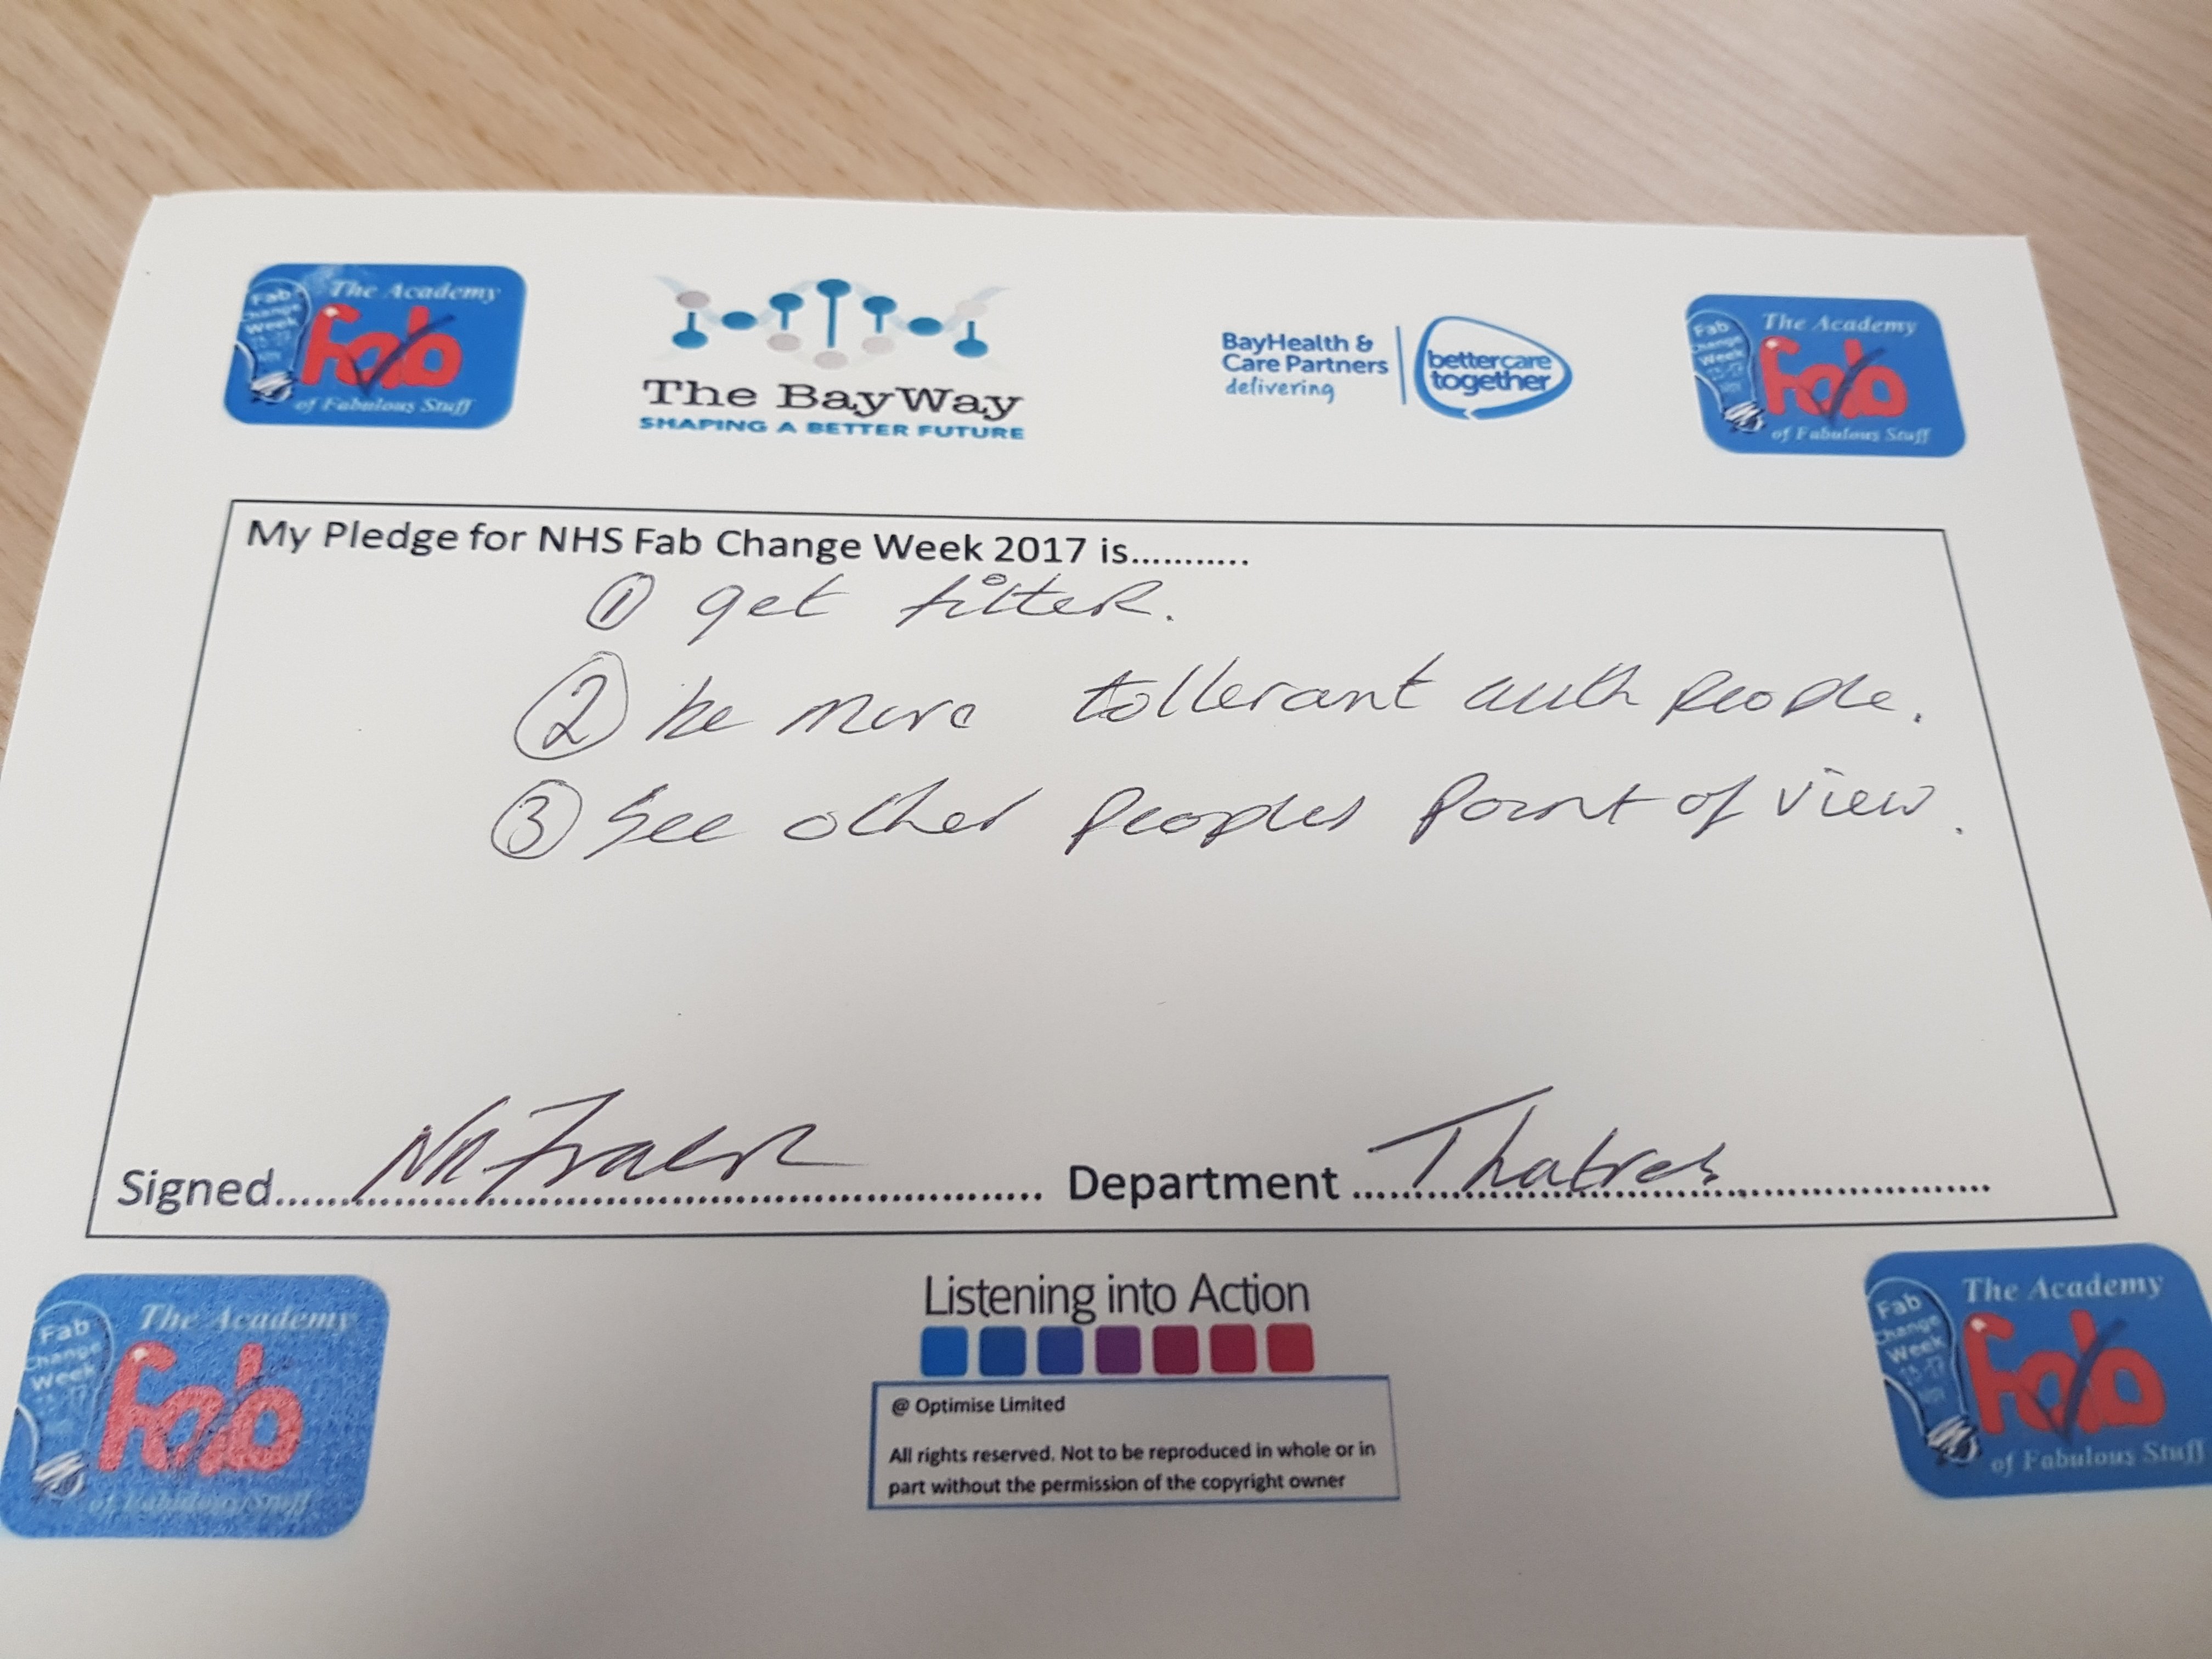 The Academy
Fab
Change
Week
Fab
of Fabulous Stuff
The BayWay
SHAPING A BETTER FUTURE
BayHealth &
Care Partners
delivering
bettercare
together
The Academy
Fab
Change
Week
Fab
of Fabulous Stuff
My Pledge for NHS Fab Change Week 2017 is...........
① get fitter.
② be more tollerant with people.
③ See other peoples point of view.
Signed............................................................ Department Thatres
Listening into Action
@ Optimise Limited
All rights reserved. Not to be reproduced in whole or in
part without the permission of the copyright owner
The Academy
Fab
Change
Week
Fab
of Fabulous Stuff
The Academy
Fab
Change
Week
Fab
of Fabulous Stuff